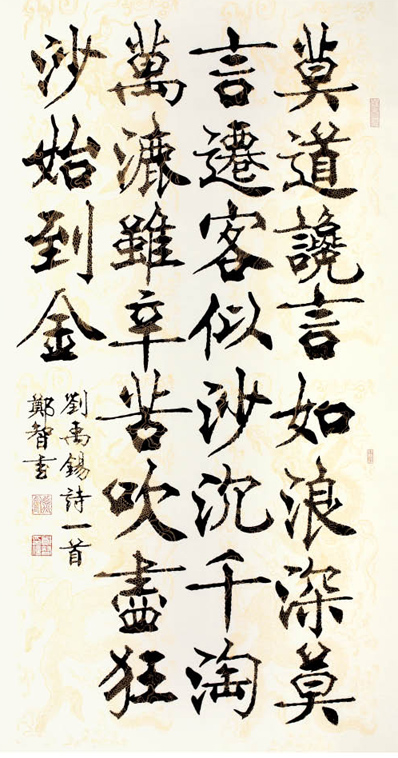 莫道讒言如浪深莫
言遷客似沙沉千淘
萬漉雖辛苦吹盡狂
沙始到金
劉禹錫詩一首
鄭智書